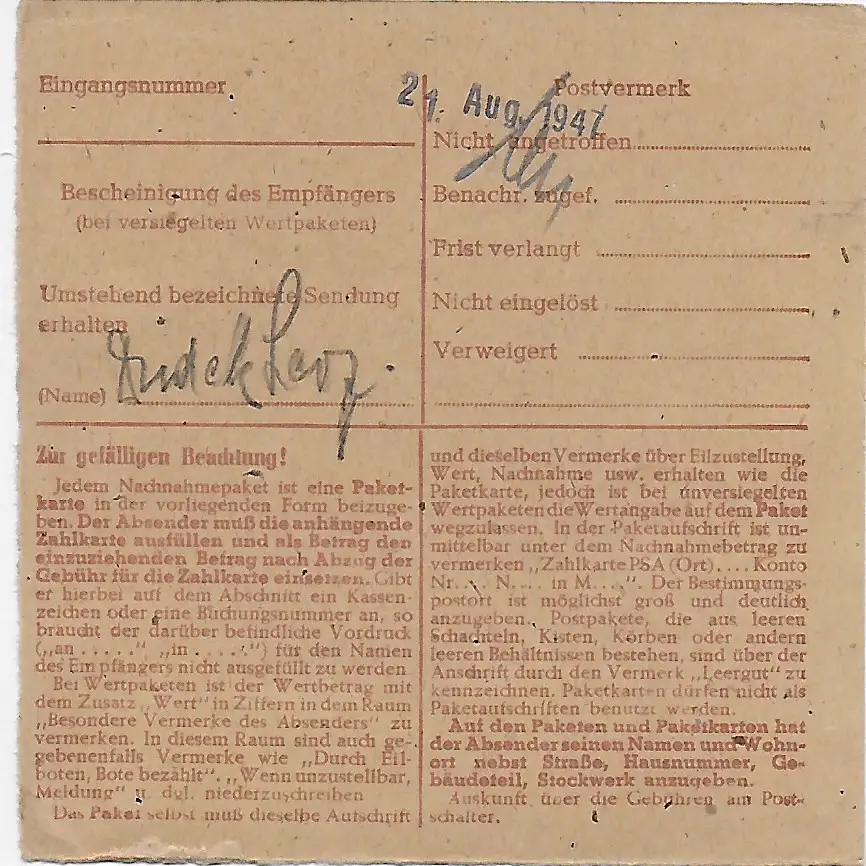 Eingangsnummer
21. Aug. 1947
Postvermerk
Nicht angetroffen
Bescheinigung des Empfängers
(bei versiegelten Wertpaketen)
Benachr. zugef.
Frist verlangt
Umstehend bezeichnete Sendung
erhalten
Nicht eingelöst
Verweigert
(Name)
Zur gefälligen Beachtung!
Jedem Nachnahmepaket ist eine Paket-
karte in der vorliegenden Form beizuge-
ben. Der Absender muß die anhängende
Zahlkarte ausfüllen und als Betrag den
einzuziehenden Betrag nach Abzug der
Gebühr für die Zahlkarte einsetzen. Gibt
er hierbei auf dem Abschnitt ein Kassen-
zeichen oder eine Buchungsnummer an, so
braucht der darüber befindliche Vordruck
(„an . . . . .", „in . . . . .") für den Namen
des Empfängers nicht ausgefüllt zu werden
Bei Wertpaketen ist der Wertbetrag mit
dem Zusatz „Wert" in Ziffern in dem Raum
„Besondere Vermerke des Absenders" zu
vermerken. In diesem Raum sind auch ge-
gebenenfalls Vermerke wie „Durch Eil-
boten, Bote bezahlt". „Wenn unzustellbar,
Meldung" u. dgl. niederzuschreiben
Das Paket selbst muß dieselbe Aufschrift
und dieselben Vermerke über Eilzustellung,
Wert, Nachnahme usw. erhalten wie die
Paketkarte, jedoch ist bei unversiegelten
Wertpaketen die Wertangabe auf dem Paket
wegzulassen. In der Paketaufschrift ist un-
mittelbar unter dem Nachnahmebetrag zu
vermerken „Zahlkarte PSA (Ort).... Konto
Nr.... N.... in M....". Der Bestimmungs-
postort ist möglichst groß und deutlich
anzugeben. Postpakete, die aus leeren
Schachteln, Kisten, Körben oder andern
leeren Behältnissen bestehen, sind über der
Anschrift durch den Vermerk „Leergut" zu
kennzeichnen. Paketkarten dürfen nicht als
Paketaufschriften benutzt werden.
Auf den Paketen und Paketkarten hat
der Absender seinen Namen und Wohn-
ort nebst Straße, Hausnummer, Ge-
bäudeteil, Stockwerk anzugeben.
Auskunft über die Gebühren am Post-
schalter.